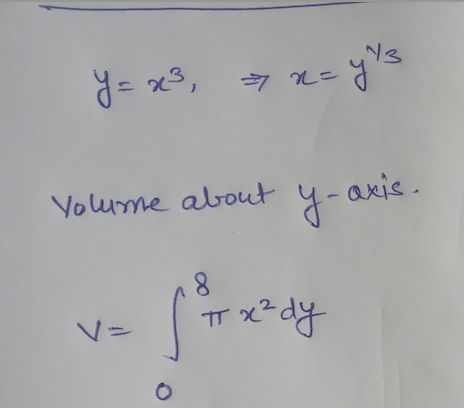 y = x³, ⇒ x = y^1/3
Volume about y-axis.
V = ∫₀⁸ π x² dy